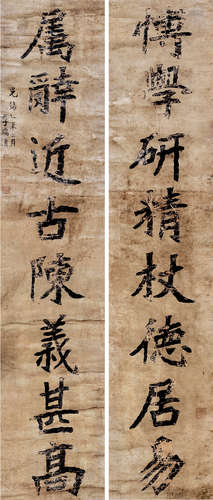 博學研精杖德居易
屬辭近古陳義甚高